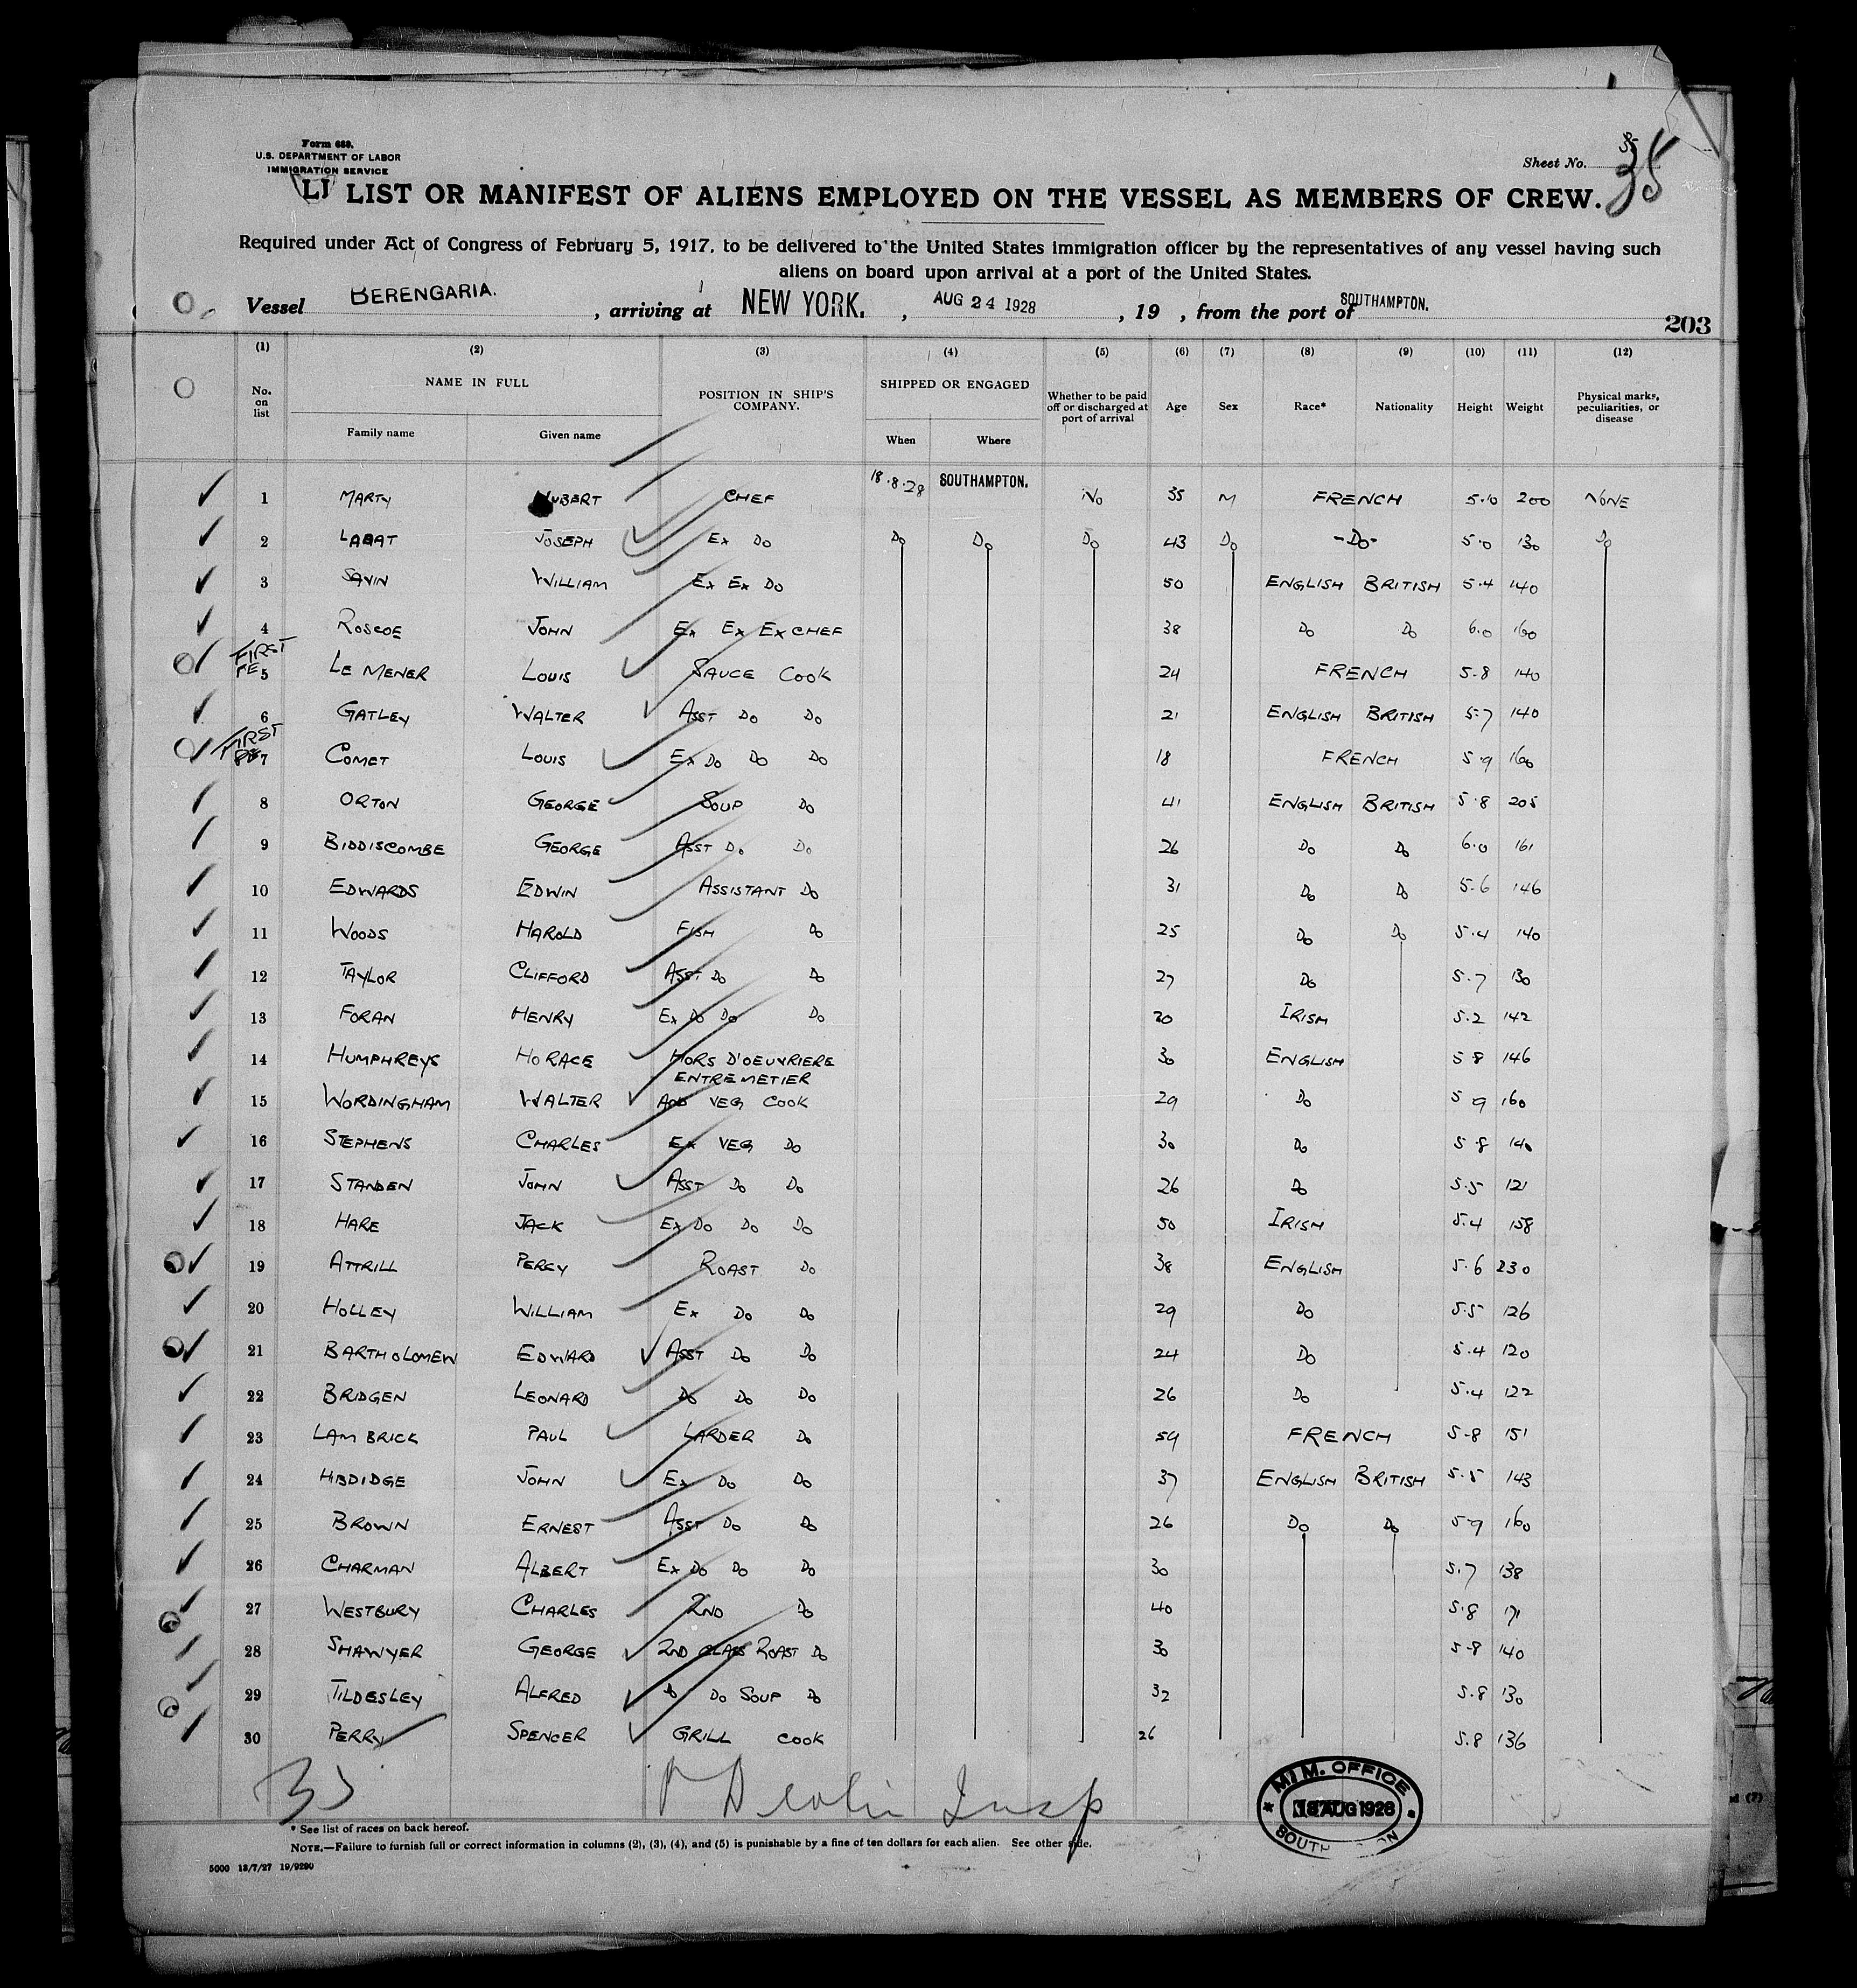 Form 680.
U.S. DEPARTMENT OF LABOR
IMMIGRATION SERVICE
Sheet No. 35
LIST OR MANIFEST OF ALIENS EMPLOYED ON THE VESSEL AS MEMBERS OF CREW.
Required under Act of Congress of February 5, 1917, to be delivered to the United States immigration officer by the representatives of any vessel having such
aliens on board upon arrival at a port of the United States.
Vessel BERENGARIA. , arriving at NEW YORK. , AUG 24 1928 , 19 , from the port of SOUTHAMPTON.
203
(1) (2) (3) (4) (5) (6) (7) (8) (9) (10) (11) (12)
No. on list NAME IN FULL Family name Given name POSITION IN SHIP'S COMPANY. SHIPPED OR ENGAGED When Where Whether to be paid off or discharged at port of arrival Age Sex Race* Nationality Height Weight Physical marks, peculiarities, or disease
1 MARTY HUBERT CHEF 18.8.28 SOUTHAMPTON. No 35 M FRENCH 5.10 200 NONE
2 LABAT JOSEPH Ex Do Do Do Do 43 Do -Do- 5.0 130 Do
3 SAVIN WILLIAM Ex Ex Do 50 ENGLISH BRITISH 5.4 140
4 ROSCOE JOHN Ex Ex Ex CHEF 38 Do Do 6.0 160
FIRST
5 LE MENER LOUIS SAUCE COOK 24 FRENCH 5.8 140
6 GATLEY WALTER ASST Do Do 21 ENGLISH BRITISH 5.7 140
FIRST
7 COMET LOUIS Ex Do Do Do 18 FRENCH 5.9 160
8 ORTON GEORGE SOUP Do 41 ENGLISH BRITISH 5.8 205
9 BIDDISCOMBE GEORGE ASST Do Do 26 Do Do 6.0 161
10 EDWARDS EDWIN ASSISTANT Do 31 Do Do 5.6 146
11 WOODS HAROLD FISH Do 25 Do Do 5.4 140
12 TAYLOR CLIFFORD ASST Do Do 27 Do 5.7 130
13 FORAN HENRY Ex Do Do Do IRISH 5.2 142
14 HUMPHREYS HORACE HORS D'OEUVRIERE 30 ENGLISH 5 8 146
ENTREMETIER
15 WORDINGHAM WALTER AND VEG COOK 29 Do 5 9 160
16 STEPHENS CHARLES Ex VEG Do 30 Do 5.8 140
17 STANDEN JOHN ASST Do Do 26 Do 5.5 121
18 HARE JACK Ex Do Do Do 50 IRISH 5.4 158
19 ATTRILL PERCY ROAST Do 38 ENGLISH 5.6 230
20 HOLLEY WILLIAM Ex Do Do 29 Do 5.5 126
21 BARTHOLOMEW EDWARD ASST Do Do 24 Do 5.4 120
22 BRIDGEN LEONARD Do Do Do 26 Do 5.4 122
23 LAMBRICK PAUL LARDER Do 59 FRENCH 5-8 151
24 HIBDIDGE JOHN Ex Do Do 37 ENGLISH BRITISH 5.5 143
25 BROWN ERNEST ASST Do Do 26 Do Do 5-9 160
26 CHARMAN ALBERT Ex Do Do Do 30 5.7 138
27 WESTBURY CHARLES 2ND Do 40 5.8 171
28 SHAWYER GEORGE 2ND CLASS ROAST Do 30 5-8 140
29 TILDESLEY ALFRED Do Do SOUP Do 32 5.8 130
30 PERRY SPENCER GRILL COOK 26 5.8 136
Insp
M.M. OFFICE
18 AUG 1928
* See list of races on back hereof.
NOTE.—Failure to furnish full or correct information in columns (2), (3), (4), and (5) is punishable by a fine of ten dollars for each alien. See other side.
5000 13/7/27 19/9290